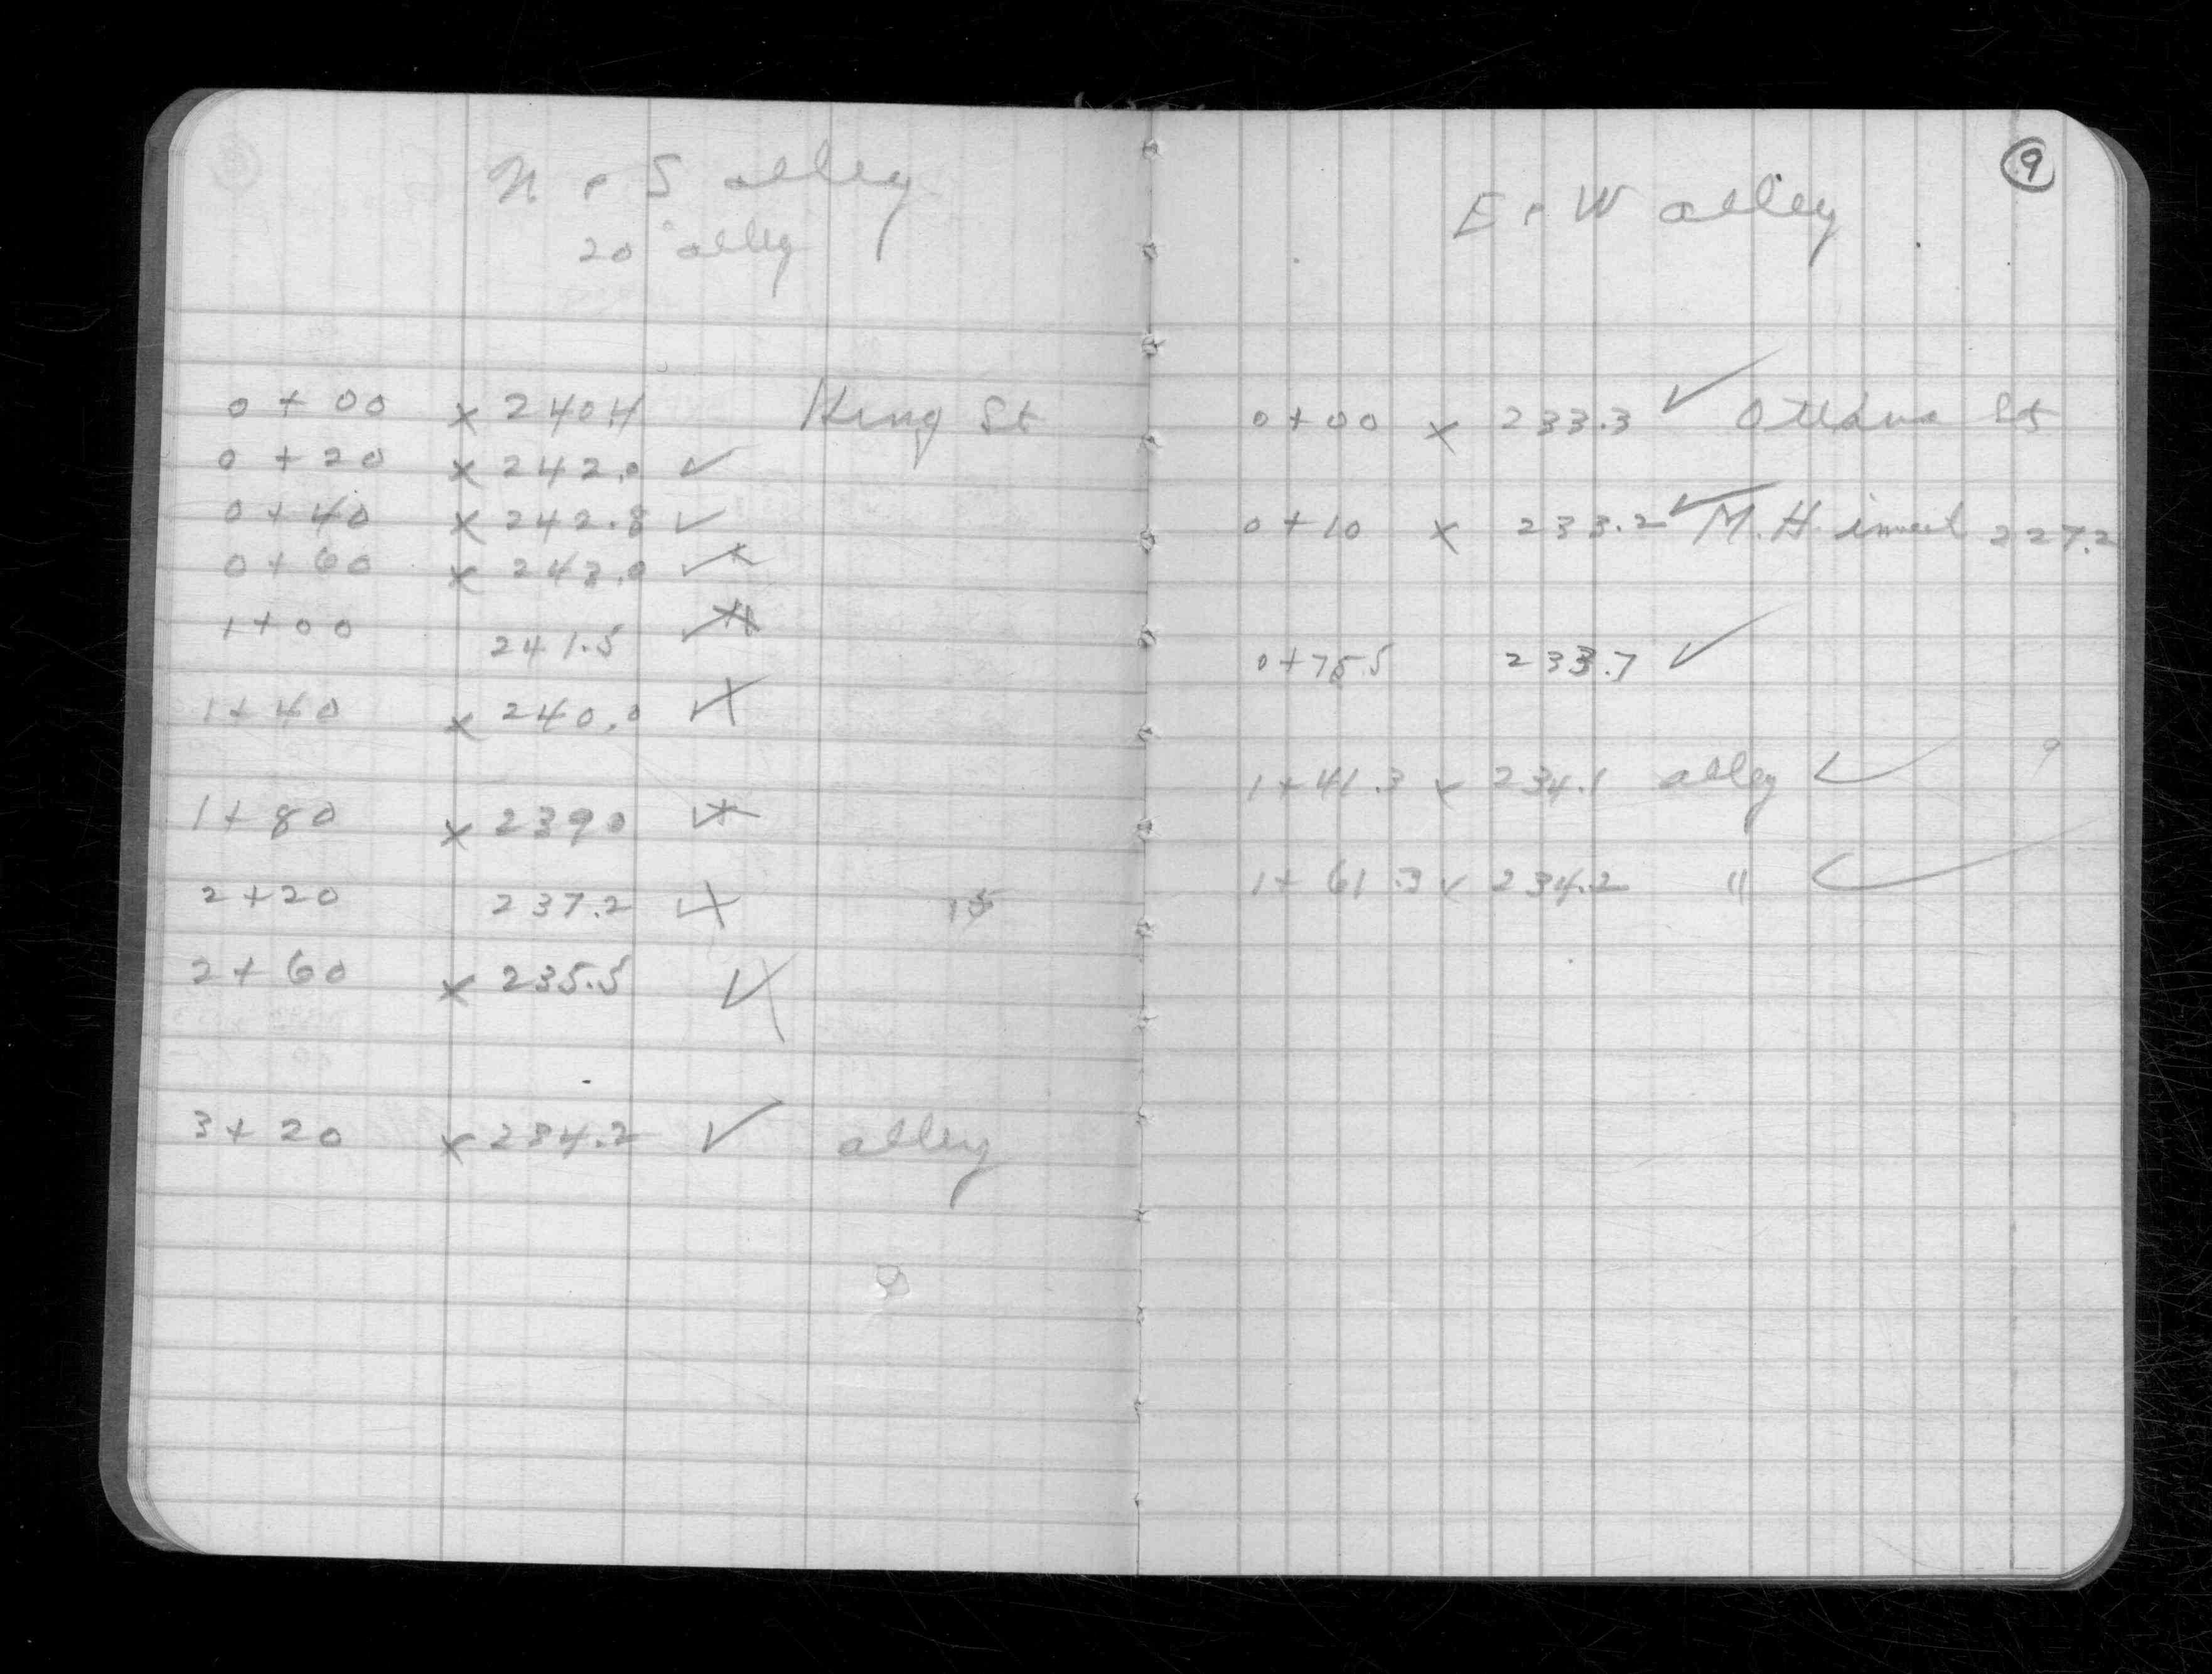 N & S alley
20' alley
0+00 x 240.4 King St
0+20 x 242.0 ✓
0+40 x 242.8 ✓
0+60 x 243.0 ✓
1+00 241.5 ✓
1+40 x 240.0 ✓
1+80 x 239.0 ✓
2+20 237.2 ✓ 15
2+60 x 235.5 ✓
3+20 x 234.2 ✓ alley
9
E & W alley
0+00 x 233.3 ✓ Ottawa St
0+10 x 233.2 ✓ M.H. invert 227.2
0+75.5 233.7 ✓
1+41.3 x 234.1 alley ✓
1+61.3 x 234.2 " ✓